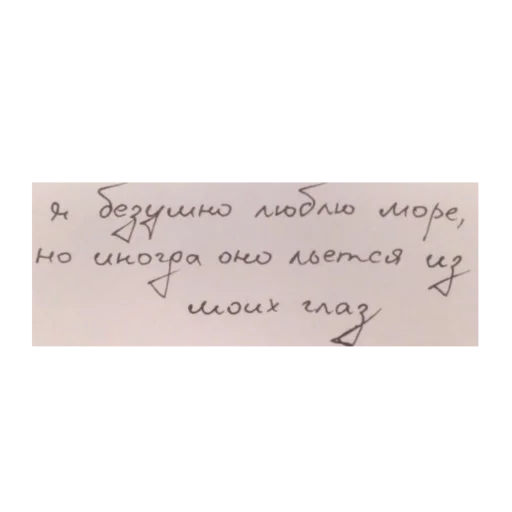 я безумно люблю море,
но иногда оно льется из
моих глаз